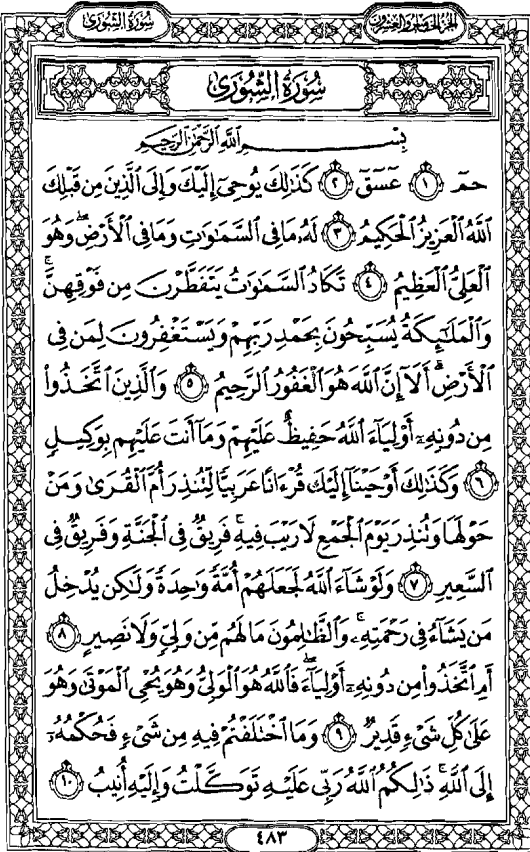 سُورَةُ الشُّورَى
الجُزْءُ الخَامِسُ وَالعِشْرُونَ
سُورَةُ الشُّورَى
بِسْمِ اللَّهِ الرَّحْمَٰنِ الرَّحِيمِ
حمٓ ١ عٓسٓقٓ ٢ كَذَٰلِكَ يُوحِيٓ إِلَيْكَ وَإِلَى الَّذِينَ مِن قَبْلِكَ
اللَّهُ الْعَزِيزُ الْحَكِيمُ ٣ لَهُۥ مَا فِي السَّمَٰوَٰتِ وَمَا فِي الْأَرْضِ ۖ وَهُوَ
الْعَلِيُّ الْعَظِيمُ ٤ تَكَادُ السَّمَٰوَٰتُ يَتَفَطَّرْنَ مِن فَوْقِهِنَّ ۚ
وَالْمَلَٰٓئِكَةُ يُسَبِّحُونَ بِحَمْدِ رَبِّهِمْ وَيَسْتَغْفِرُونَ لِمَن فِي
الْأَرْضِ ۗ أَلَآ إِنَّ اللَّهَ هُوَ الْغَفُورُ الرَّحِيمُ ٥ وَالَّذِينَ اتَّخَذُوا
مِن دُونِهِۦٓ أَوْلِيَآءَ اللَّهُ حَفِيظٌ عَلَيْهِمْ وَمَآ أَنتَ عَلَيْهِم بِوَكِيلٍ
٦ وَكَذَٰلِكَ أَوْحَيْنَآ إِلَيْكَ قُرْءَانًا عَرَبِيًّا لِّتُنذِرَ أُمَّ الْقُرَىٰ وَمَنْ
حَوْلَهَا وَتُنذِرَ يَوْمَ الْجَمْعِ لَا رَيْبَ فِيهِ ۚ فَرِيقٌ فِي الْجَنَّةِ وَفَرِيقٌ فِي
السَّعِيرِ ٧ وَلَوْ شَآءَ اللَّهُ لَجَعَلَهُمْ أُمَّةً وَٰحِدَةً وَلَٰكِن يُدْخِلُ
مَن يَشَآءُ فِي رَحْمَتِهِۦ ۚ وَالظَّٰلِمُونَ مَا لَهُم مِّن وَلِيٍّ وَلَا نَصِيرٍ ٨
أَمِ اتَّخَذُوا مِن دُونِهِۦٓ أَوْلِيَآءَ ۖ فَاللَّهُ هُوَ الْوَلِيُّ وَهُوَ يُحْيِ الْمَوْتَىٰ وَهُوَ
عَلَىٰ كُلِّ شَيْءٍ قَدِيرٌ ٩ وَمَا اخْتَلَفْتُمْ فِيهِ مِن شَيْءٍ فَحُكْمُهُۥٓ
إِلَى اللَّهِ ۚ ذَٰلِكُمُ اللَّهُ رَبِّي عَلَيْهِ تَوَكَّلْتُ وَإِلَيْهِ أُنِيبُ ١٠
٤٨٣